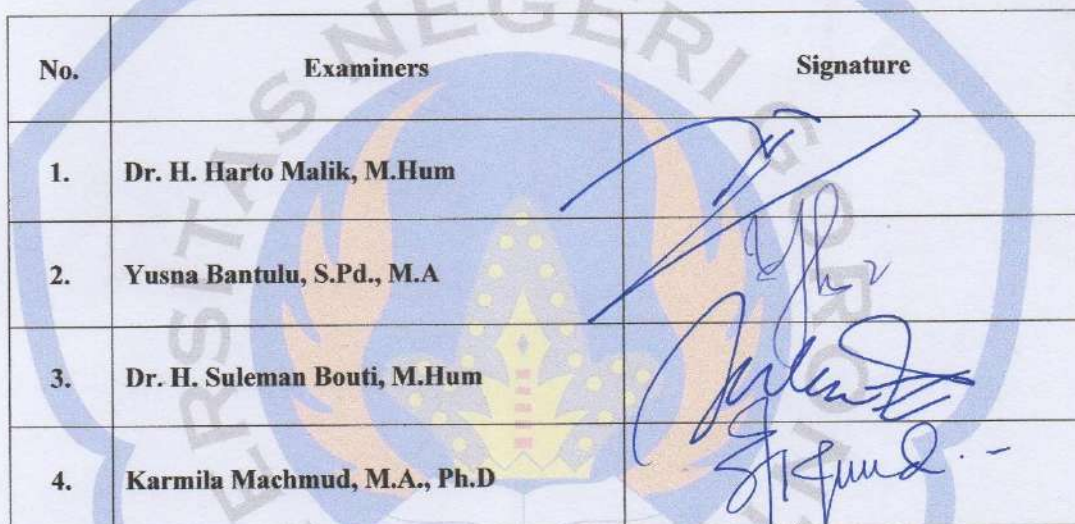 No. Examiners Signature
1. Dr. H. Harto Malik, M.Hum
2. Yusna Bantulu, S.Pd., M.A
3. Dr. H. Suleman Bouti, M.Hum
4. Karmila Machmud, M.A., Ph.D
ERSITAS NEGERI GORON